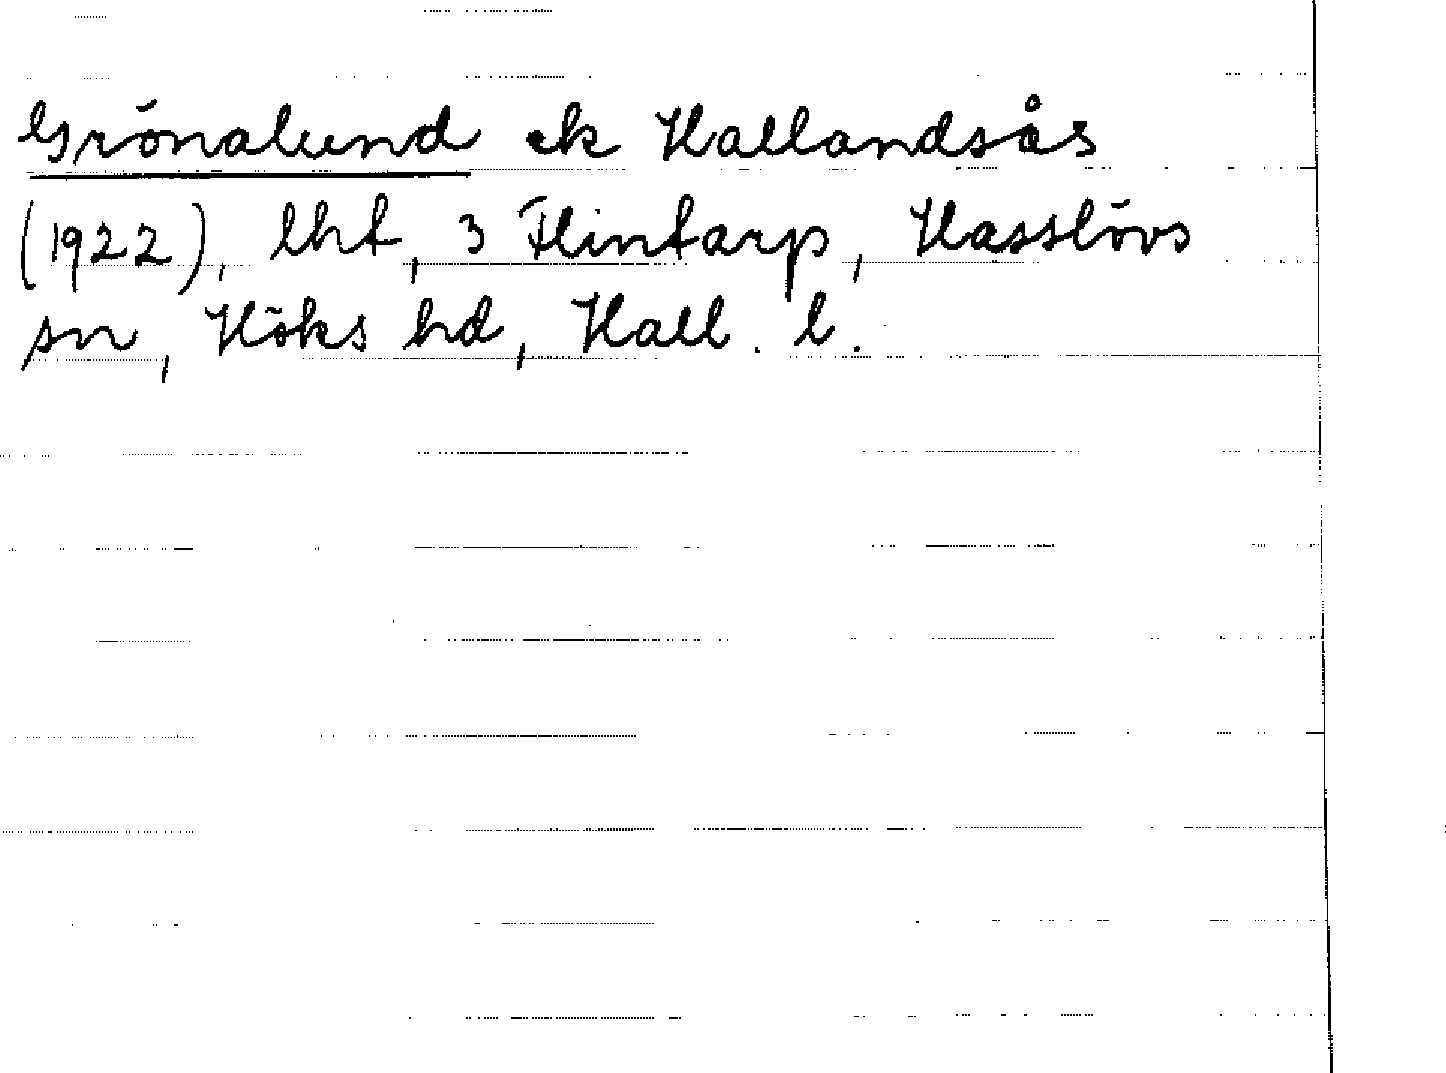 Grönalund ek Hallandsås
(1922), lht, 3 Flintarp, Hasslövs
sn, Höks hd, Hall. l.